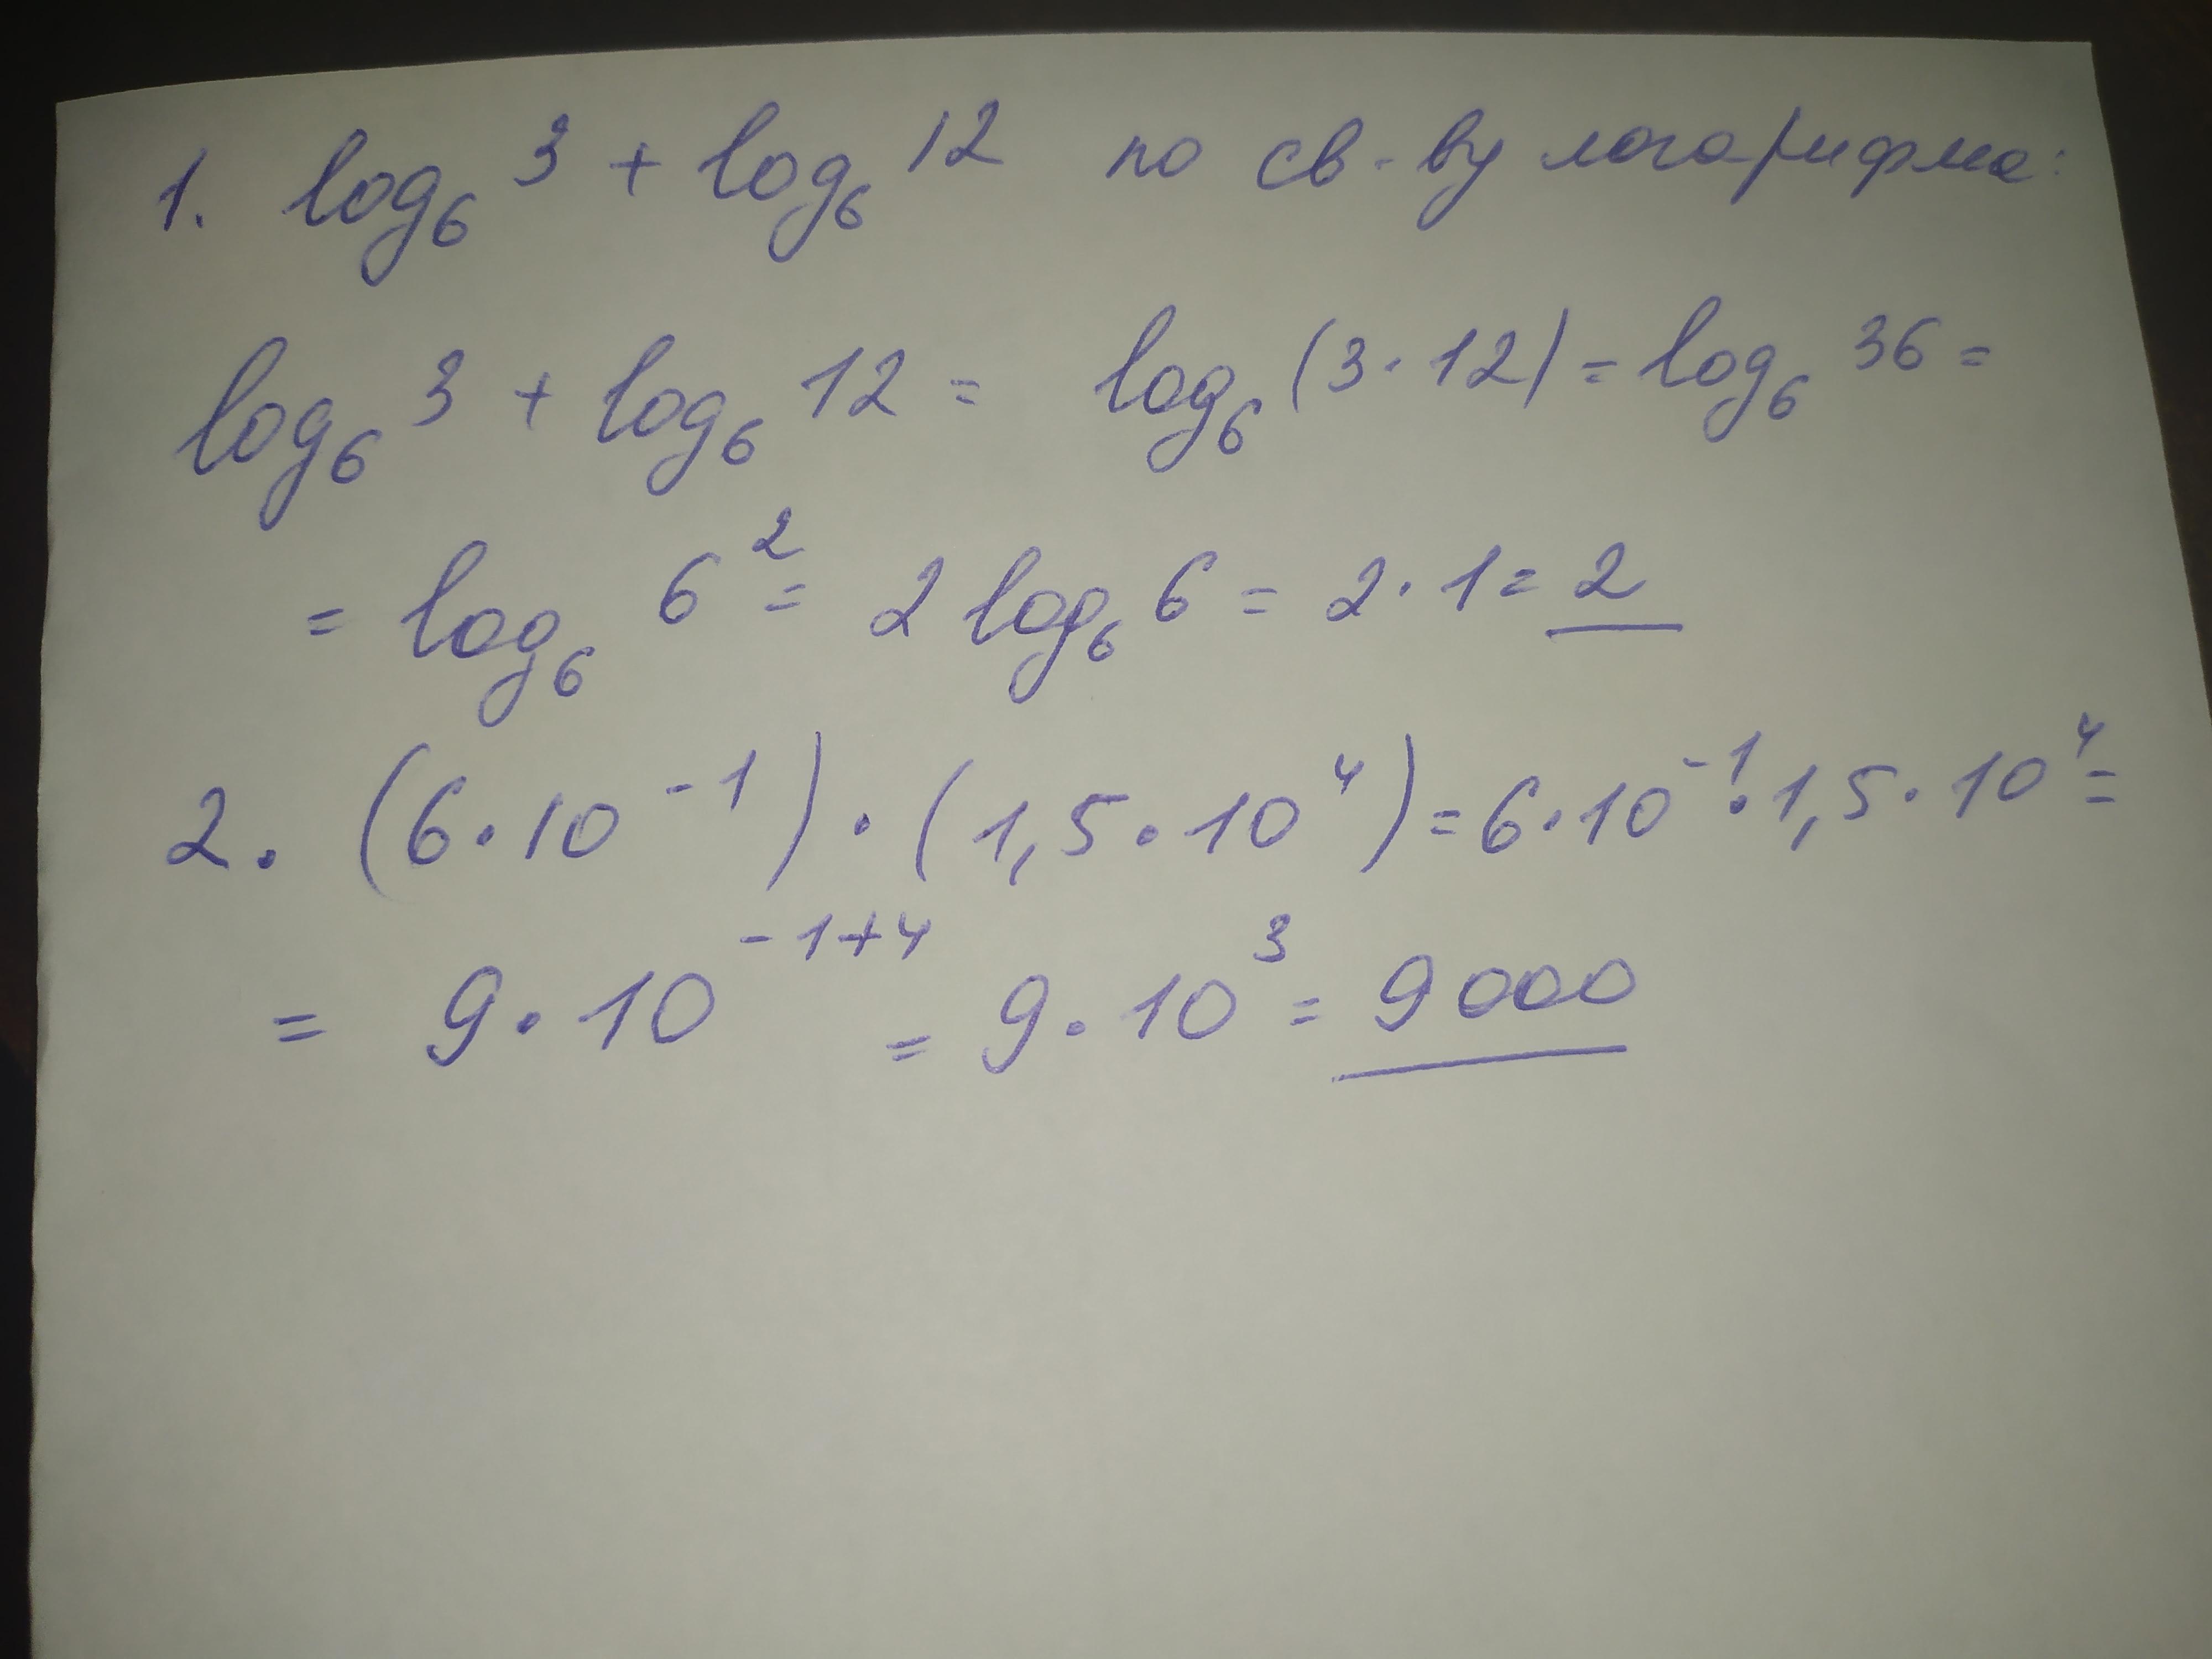 1. log₆ 3 + log₆ 12 по св-ву логарифма:
log₆ 3 + log₆ 12 = log₆ (3·12) = log₆ 36 =
= log₆ 6² = 2 log₆ 6 = 2·1 = 2
2. (6·10⁻¹)·(1,5·10⁴) = 6·10⁻¹·1,5·10⁴ =
= 9·10⁻¹⁺⁴ = 9·10³ = 9000